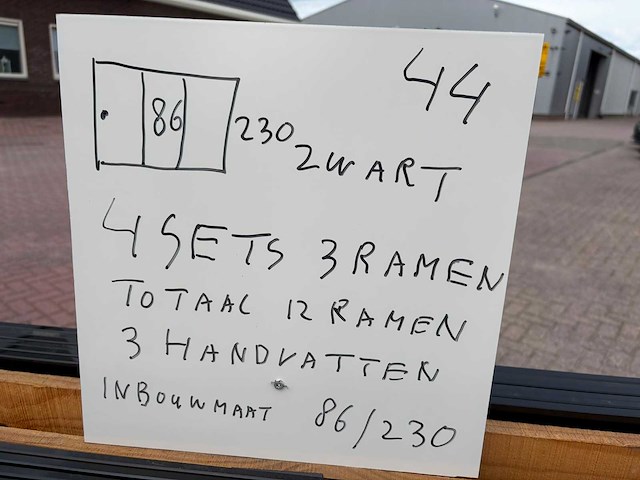 44
86
230
ZWART
4 SETS 3 RAMEN
TOTAAL 12 RAMEN
3 HANDVATTEN
INBOUWMAAT 86/230